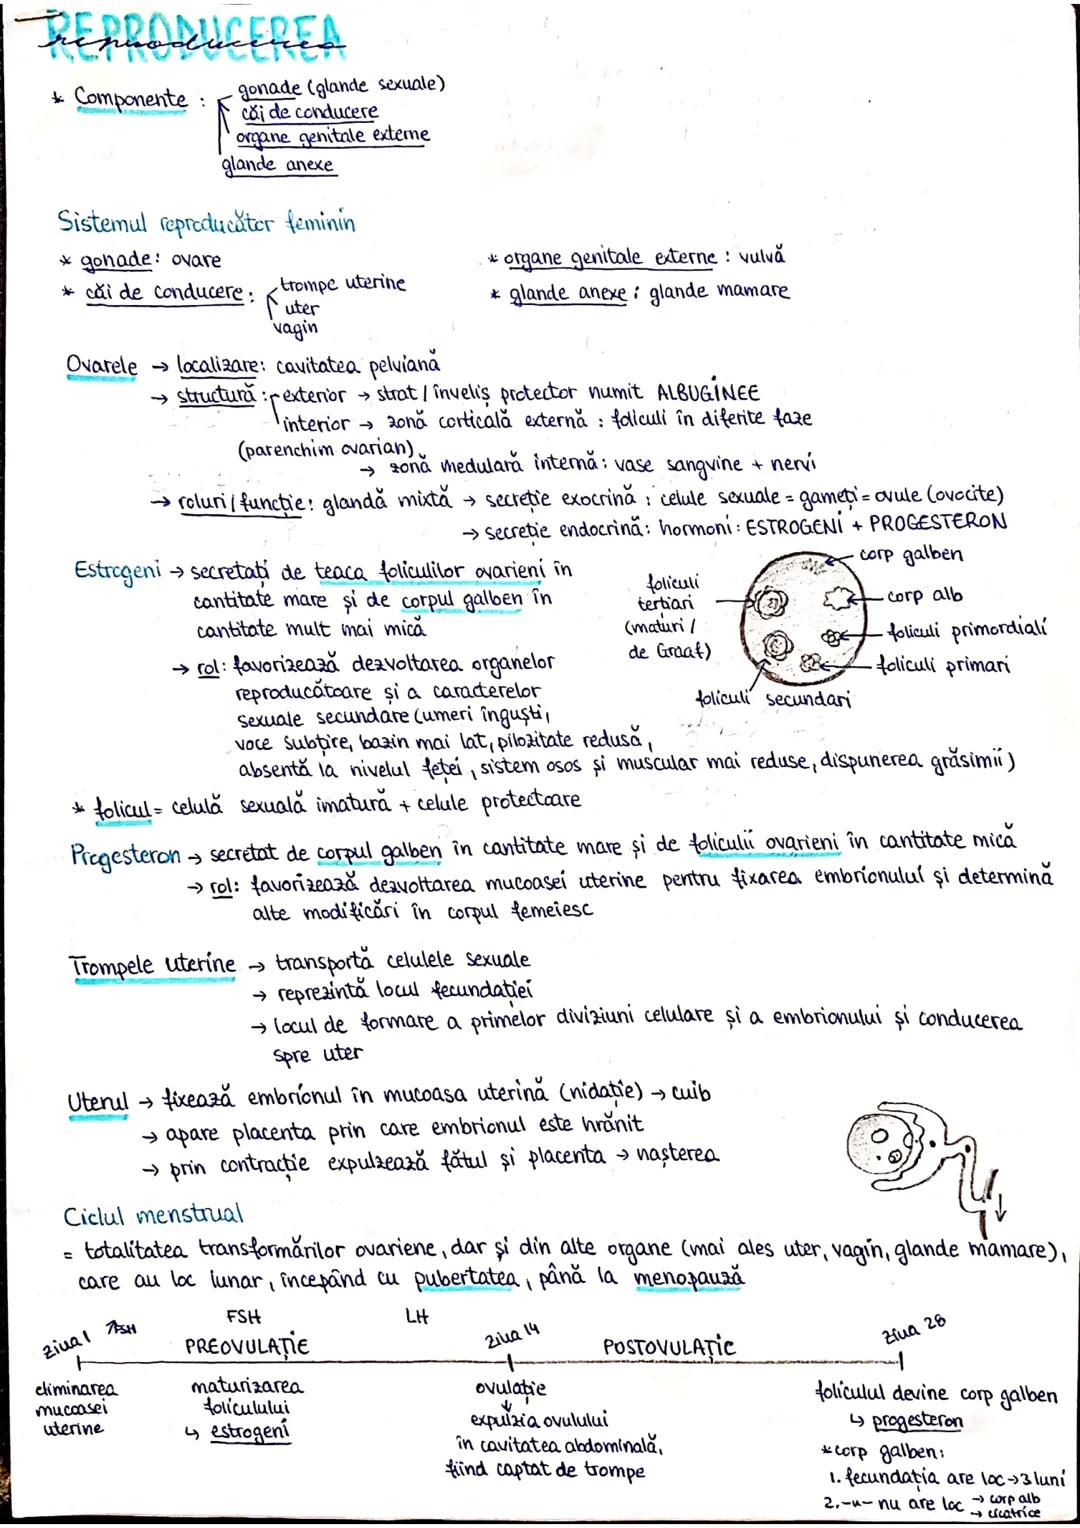 REPRODUCEREA
reproducerea
* Componente : gonade (glande sexuale)
căi de conducere
organe genitale externe
glande anexe
Sistemul reproducător feminin
* gonade: ovare
* căi de conducere: trompe uterine
uter
vagin
* organe genitale externe : vulvă
* glande anexe: glande mamare
Ovarele → localizare: cavitatea pelviană
→ structură: exterior → strat / înveliș protector numit ALBUGINEE
interior → zonă corticală externă : foliculi în diferite faze
(parenchim ovarian)
→ zonă medulară internă: vase sangvine + nervi
→ roluri / funcție: glandă mixtă → secreție exocrină : celule sexuale = gameți = ovule (ovocite)
→ secreție endocrină: hormoni: ESTROGENI + PROGESTERON
Estrogeni → secretați de teaca foliculilor ovarieni în
cantitate mare și de corpul galben în
cantitate mult mai mică
→ rol: favorizează dezvoltarea organelor
reproducătoare și a caracterelor
sexuale secundare (umeri înguști,
voce subțire, bazin mai lat, pilozitate redusă,
absentă la nivelul feței, sistem osos și muscular mai reduse, dispunerea grăsimii)
corp galben
foliculi
terțiari
(maturi /
de Graaf)
corp alb
foliculi primordiali
foliculi primari
foliculi secundari
* folicul = celulă sexuală imatură + celule protectoare
Progesteron → secretat de corpul galben în cantitate mare și de foliculii ovarieni în cantitate mică
→ rol: favorizează dezvoltarea mucoasei uterine pentru fixarea embrionului și determină
alte modificări în corpul femeiesc
Trompele uterine → transportă celulele sexuale
→ reprezintă locul fecundației
→ locul de formare a primelor diviziuni celulare și a embrionului și conducerea
spre uter
Uterul → fixează embrionul în mucoasa uterină (nidație) → cuib
→ apare placenta prin care embrionul este hrănit
→ prin contracție expulzează fătul și placenta → nașterea
Ciclul menstrual
= totalitatea transformărilor ovariene, dar și din alte organe (mai ales uter, vagin, glande mamare),
care au loc lunar, începând cu pubertatea, până la menopauză
ziua 1 ↗FSH
FSH
PREOVULAȚIE
LH
ziua 14
POSTOVULAȚIE
ziua 28
eliminarea
mucoasei
uterine
maturizarea
foliculului
↳ estrogeni
ovulație
↓
expulzia ovulului
în cavitatea abdominală,
fiind captat de trompe
foliculul devine corp galben
↳ progesteron
* corp galben:
1. fecundația are loc → 3 luni
2. -u- nu are loc → corp alb
→ cicatrice